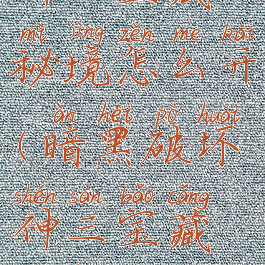 mì jìng zěn me kāi
秘境怎么开
àn hēi pò huài
(暗黑破坏
shén sān bǎo cáng
神三宝藏